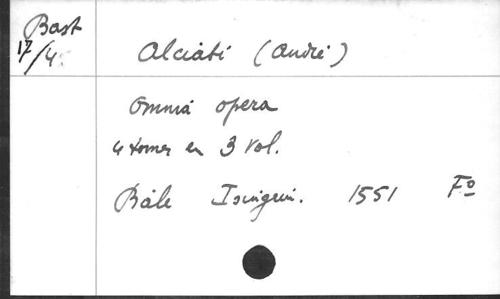 Bast
17/4
Alciati (André)
Omnia opera
4 tomes en 3 vol.
Bâle Isingrin. 1551 Fº